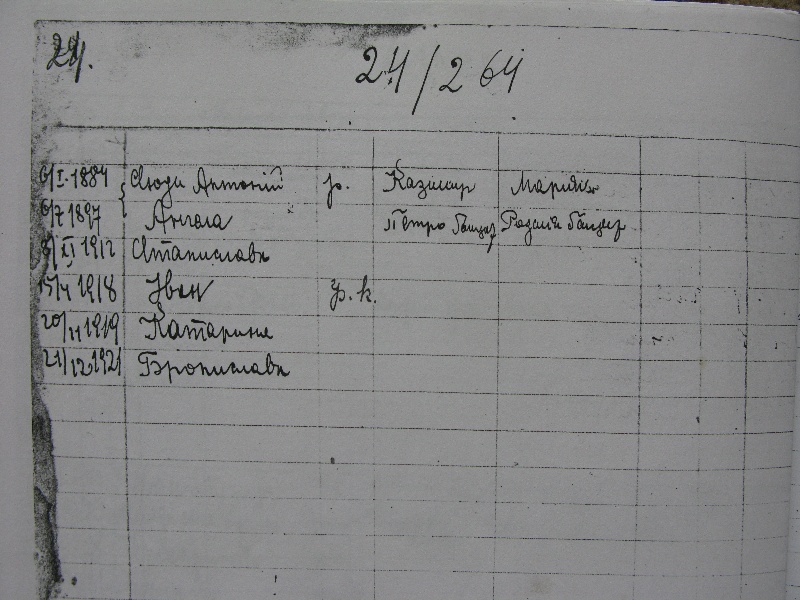 24.
24/264
6/I. 1884 Сюди Антоній р. Казимир Марія
6/7 1897 Ангела Петро Розалія
8/XI 1912 Станислава
15/4 1918 Іван р. к.
20/11 1919 Катарина
21/12 1921 Броніслава